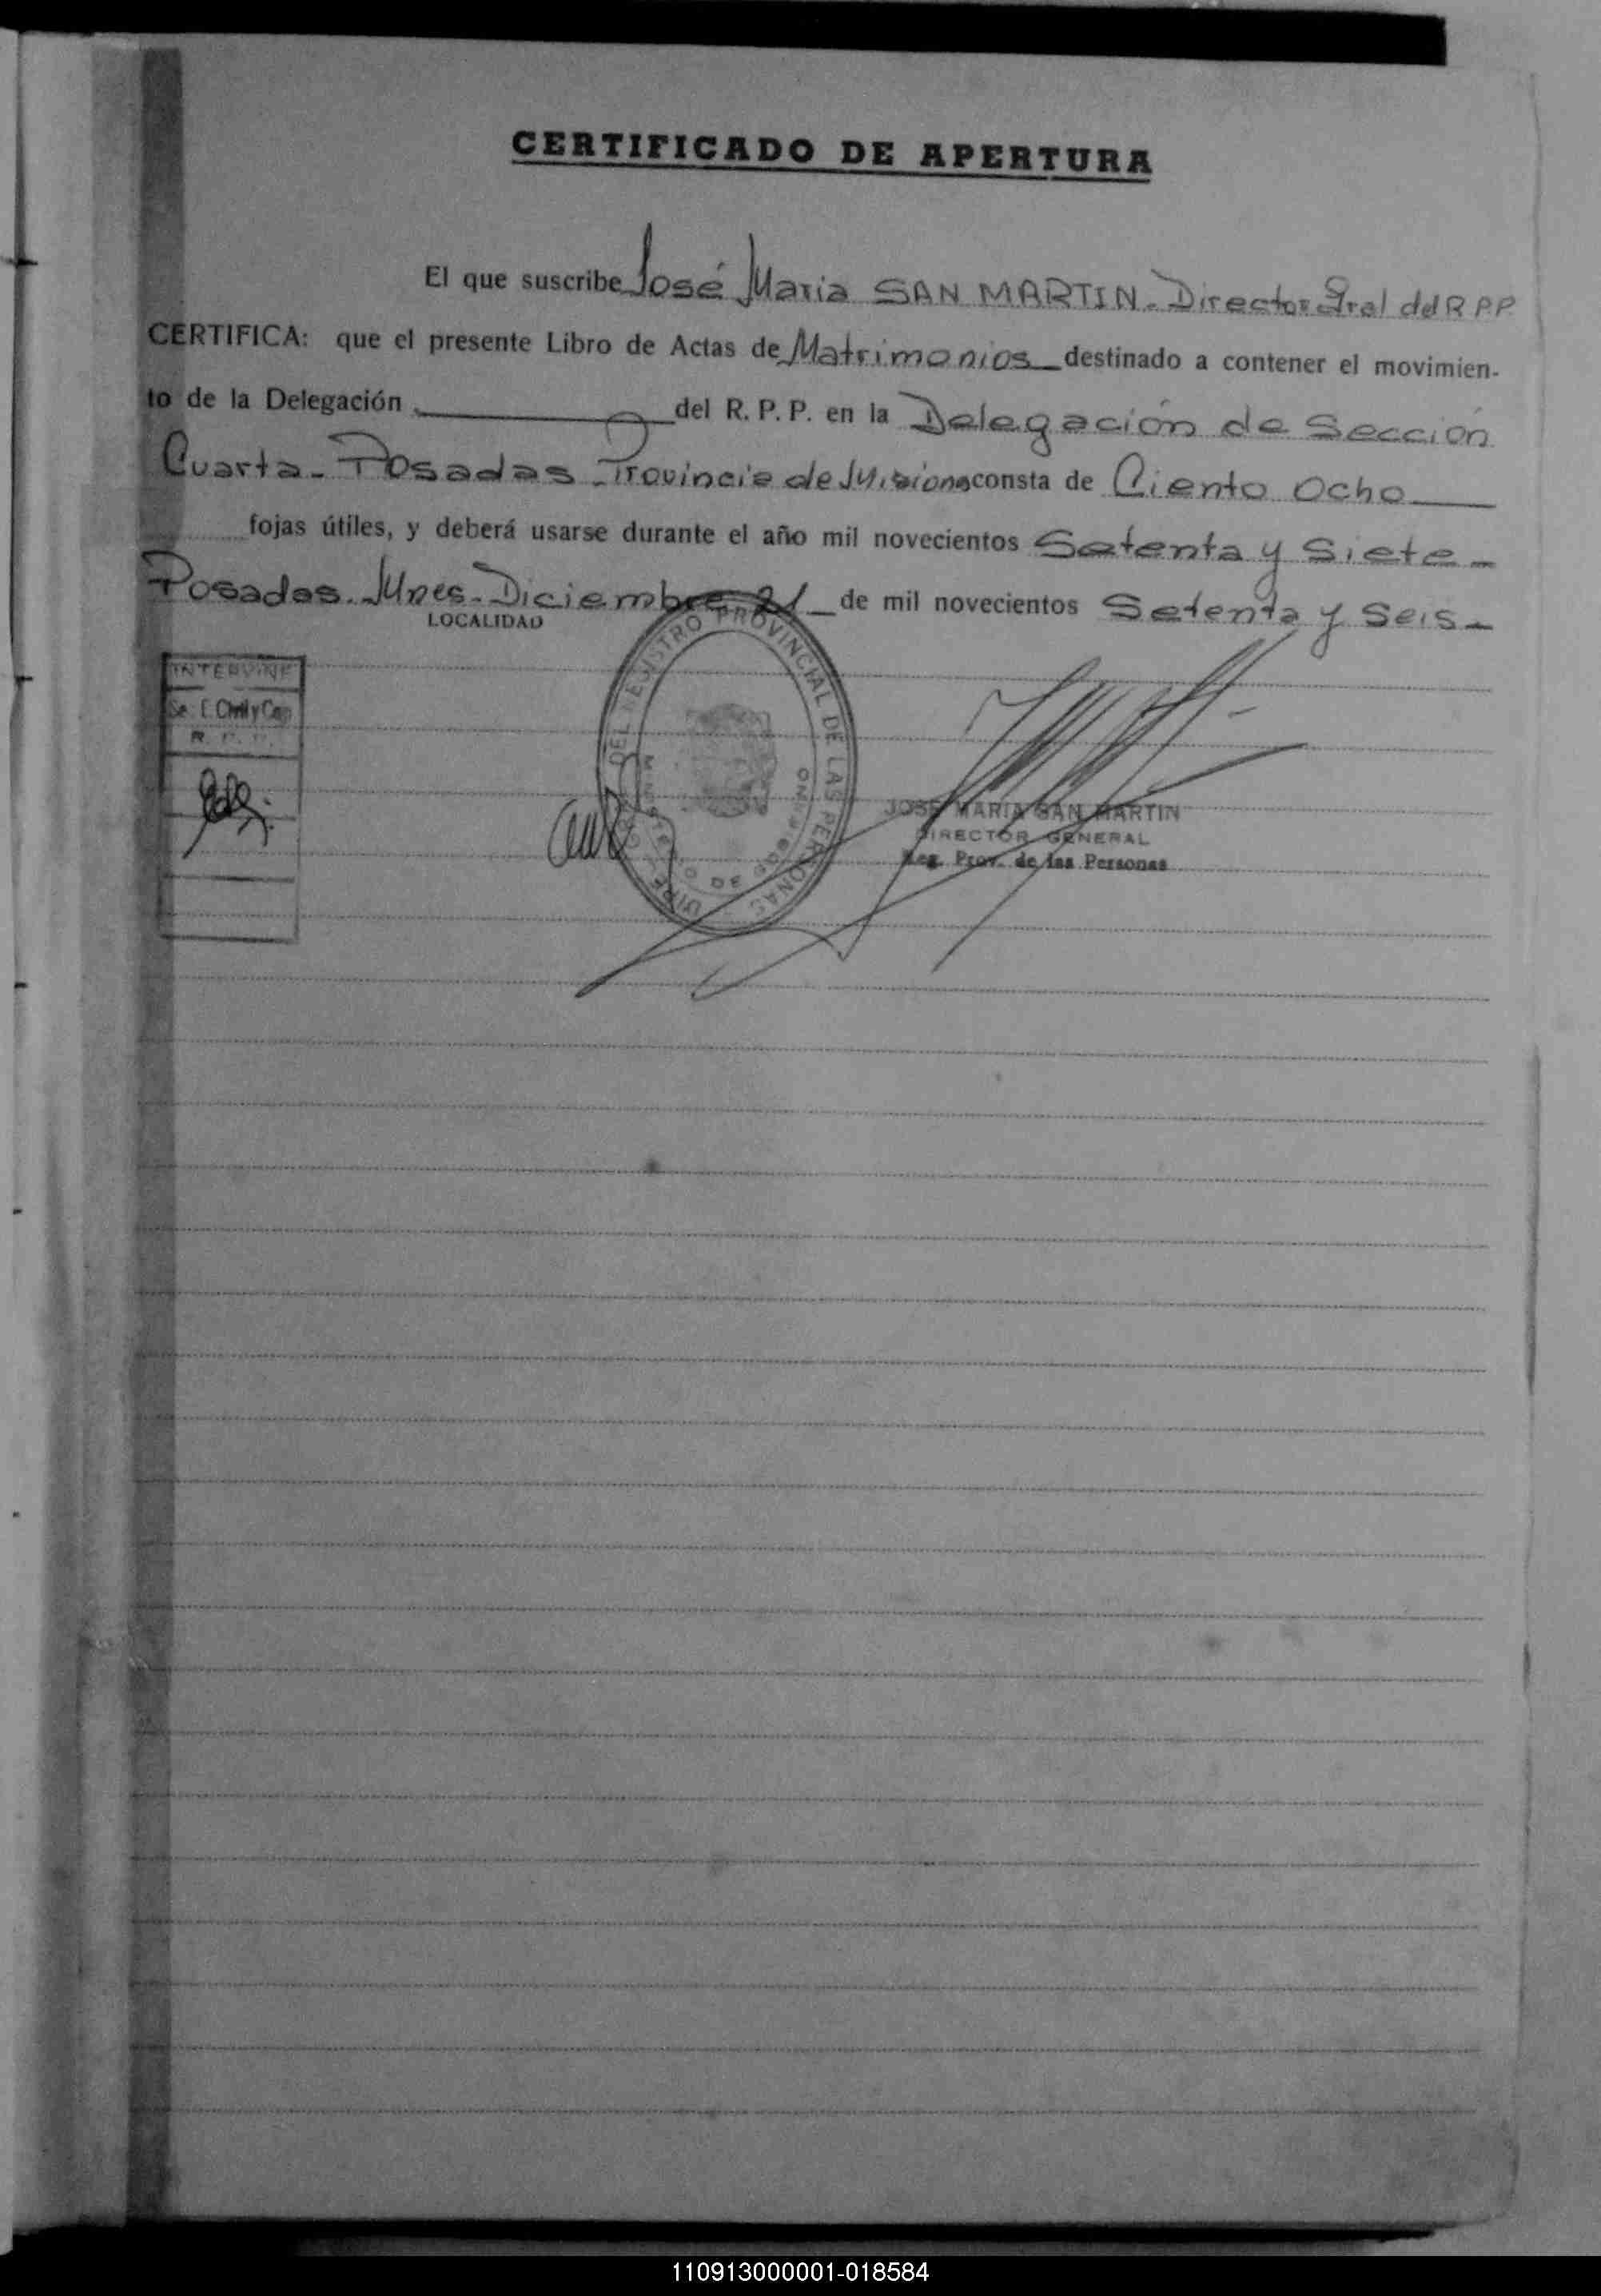 CERTIFICADO DE APERTURA
El que suscribe José Maria SAN MARTIN - Director Gral del R.P.P.
CERTIFICA: que el presente Libro de Actas de Matrimonios destinado a contener el movimien-
to de la Delegación del R. P. P. en la Delegación de Sección
Cuarta - Posadas - Provincia de Misiones consta de Ciento Ocho
fojas útiles, y deberá usarse durante el año mil novecientos Setenta y Siete -
Posadas. Mnes - Diciembre 21 de mil novecientos Setenta y Seis -
LOCALIDAD
INTERVINE
Se. E. Civil y Cap
R. P. P.
DEL REGISTRO PROVINCIAL DE LAS PERSONAS
MINISTERIO DE GOBIERNO
JOSE MARIA SAN MARTIN
DIRECTOR GENERAL
Reg. Prov. de las Personas
110913000001-018584